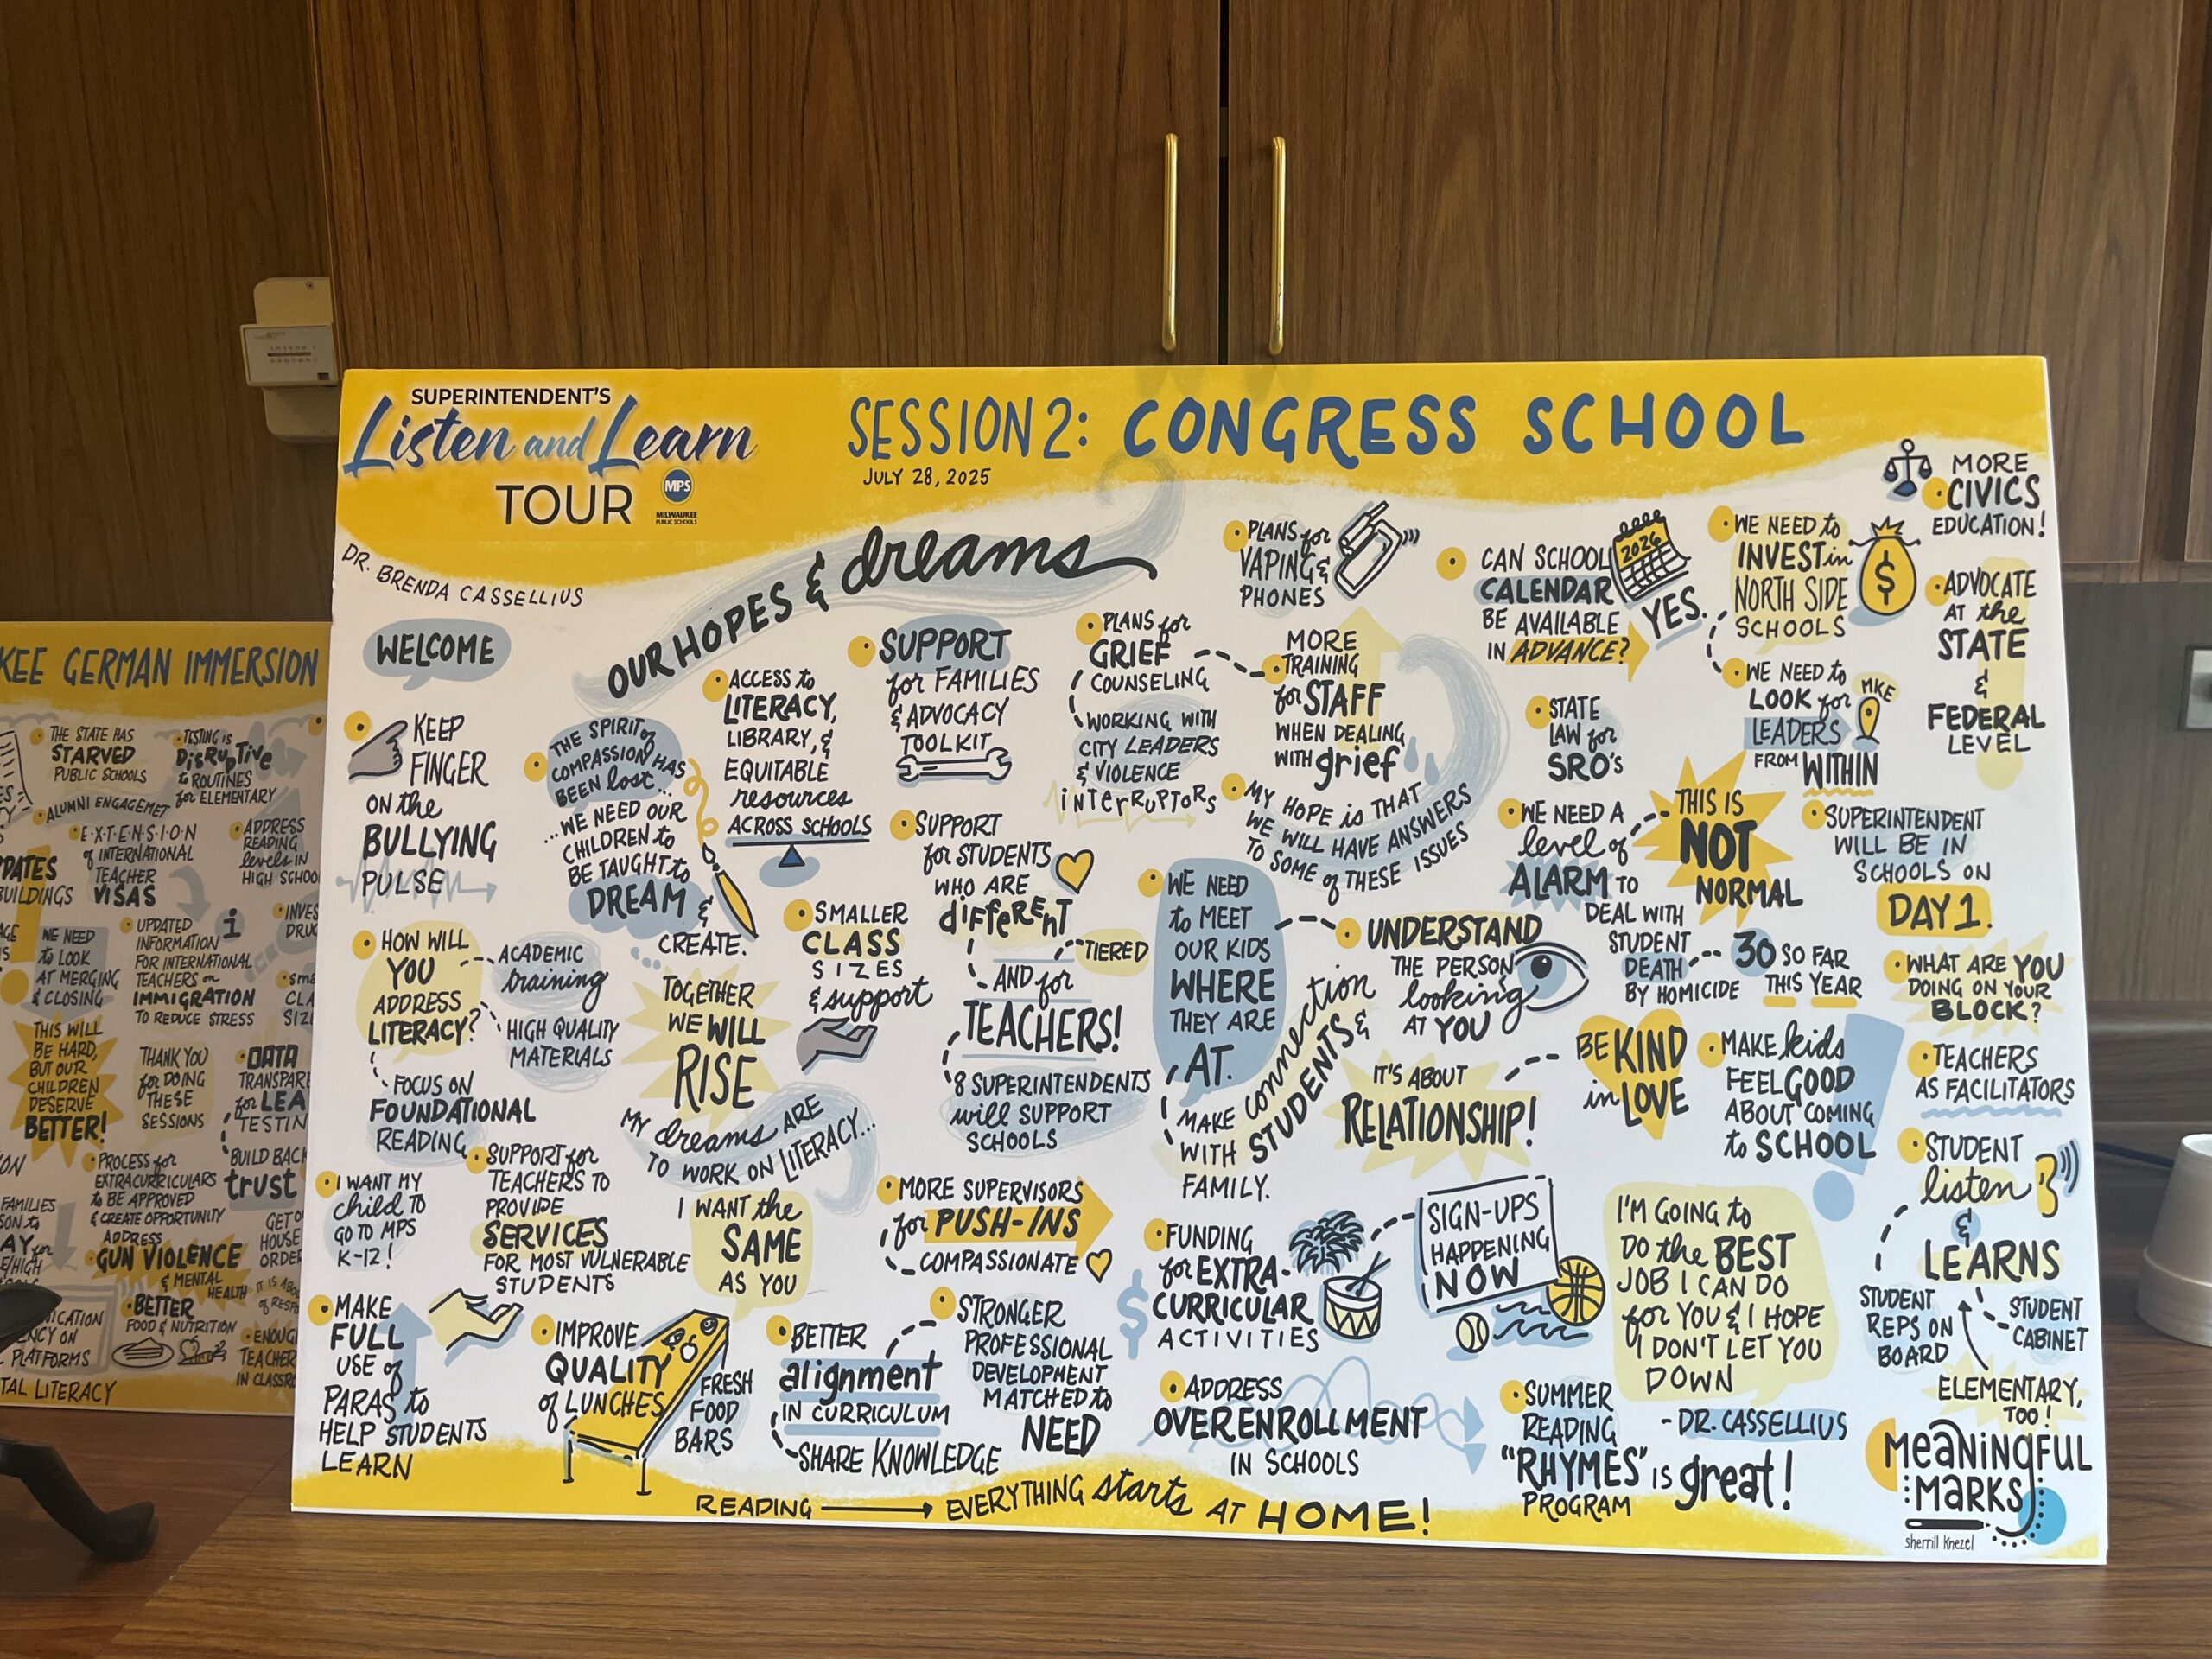 SUPERINTENDENT'S
Listen and Learn
TOUR
MPS
MILWAUKEE
PUBLIC SCHOOLS
SESSION 2: CONGRESS SCHOOL
JULY 28, 2025
DR. BRENDA CASSELLIUS
OUR HOPES & dreams
WELCOME
KEEP
FINGER
ON the
BULLYING
PULSE
THE SPIRIT of
COMPASSION HAS
BEEN lost...
...WE NEED OUR
CHILDREN to
BE TAUGHT to
DREAM &
CREATE.
ACCESS to
LITERACY,
LIBRARY, &
EQUITABLE
resources
ACROSS SCHOOLS
SUPPORT
for FAMILIES
& ADVOCACY
TOOLKIT
PLANS for
GRIEF
COUNSELING
WORKING WITH
CITY LEADERS
& VIOLENCE
INTERRUPTORS
PLANS for
VAPING &
PHONES
MORE
TRAINING
for STAFF
WHEN DEALING
WITH grief
MY HOPE is THAT
WE WILL HAVE ANSWERS
TO SOME of THESE ISSUES
CAN SCHOOL
CALENDAR
BE AVAILABLE
IN ADVANCE?
2026
YES.
WE NEED to
INVEST in
NORTH SIDE
SCHOOLS
$
WE NEED to
LOOK for
LEADERS
FROM WITHIN
MKE
MORE
CIVICS
EDUCATION!
ADVOCATE
AT the
STATE
&
FEDERAL
LEVEL
STATE
LAW for
SRO's
WE NEED A
level of
ALARM TO
DEAL WITH
STUDENT
DEATH
BY HOMICIDE
THIS IS
NOT
NORMAL
30 SO FAR
THIS YEAR
SUPERINTENDENT
WILL BE IN
SCHOOLS ON
DAY 1.
WHAT ARE YOU
DOING ON YOUR
BLOCK?
TEACHERS
AS FACILITATORS
HOW WILL
YOU
ADDRESS
LITERACY?
ACADEMIC
training
HIGH QUALITY
MATERIALS
FOCUS ON
FOUNDATIONAL
READING
TOGETHER
WE WILL
RISE
SMALLER
CLASS
SIZES
& support
SUPPORT
for STUDENTS
WHO ARE
different
AND for
TIERED
TEACHERS!
8 SUPERINTENDENTS
will SUPPORT
SCHOOLS
WE NEED
to MEET
OUR KIDS
WHERE
THEY ARE
AT.
MAKE connection
WITH STUDENTS &
FAMILY.
UNDERSTAND
THE PERSON
looking
AT YOU
IT'S ABOUT
RELATIONSHIP!
BE KIND
in LOVE
MAKE kids
FEEL GOOD
ABOUT COMING
to SCHOOL
STUDENT
listen
&
LEARNS
STUDENT
REPS ON
BOARD
STUDENT
CABINET
ELEMENTARY,
TOO!
MY dreams ARE
TO WORK ON LITERACY...
I WANT the
SAME
AS YOU
I WANT MY
child TO
GO TO MPS
K-12!
SUPPORT for
TEACHERS TO
PROVIDE
SERVICES
FOR MOST VULNERABLE
STUDENTS
MORE SUPERVISORS
for PUSH-INS
COMPASSIONATE
FUNDING
for EXTRA-
CURRICULAR
ACTIVITIES
$
SIGN-UPS
HAPPENING
NOW
I'M GOING to
DO the BEST
JOB I CAN DO
for YOU & I HOPE
I DON'T LET YOU
DOWN
- DR. CASSELLIUS
MAKE
FULL
USE of
PARAS to
HELP STUDENTS
LEARN
IMPROVE
QUALITY
of LUNCHES
FRESH
FOOD
BARS
BETTER
alignment
IN CURRICULUM
SHARE KNOWLEDGE
STRONGER
PROFESSIONAL
DEVELOPMENT
MATCHED to
NEED
ADDRESS
OVERENROLLMENT
IN SCHOOLS
SUMMER
READING
"RHYMES" is great!
PROGRAM
READING → EVERYTHING starts AT HOME!
MeaNiNgFUL
MaRKS
sherrill knezel
KEE GERMAN IMMERSION
THE STATE HAS
STARVED
PUBLIC SCHOOLS
TESTING IS
DISRUPTIVE
to ROUTINES
for ELEMENTARY
ALUMNI ENGAGEMET
E·X·T·E·N·S·I·O·N
of INTERNATIONAL
TEACHER
VISAS
ADDRESS
READING
levels IN
HIGH SCHOO
DATES
BUILDINGS
WE NEED
to LOOK
AT MERGING
& CLOSING
UPDATED
INFORMATION
FOR INTERNATIONAL
TEACHERS on
IMMIGRATION
TO REDUCE STRESS
i
INVES
DRUG
sma
CLA
SIZ
THIS WILL
BE HARD,
BUT OUR
CHILDREN
DESERVE
BETTER!
THANK YOU
for DOING
THESE
SESSIONS
DATA
TRANSPAR
for LEA
TESTIN
BUILD BACK
trust
PROCESS for
EXTRACURRICULARS
to BE APPROVED
& CREATE OPPORTUNITY
FAMILIES
ADDRESS
GUN VIOLENCE
& MENTAL
HEALTH
GET O
HOUSE
ORDER
BETTER
FOOD & NUTRITION
IT IS ABO
of RESP
ENOUG
TEACHER
IN CLASSR
ICATION
NCY ON
PLATFORMS
TAL LITERACY